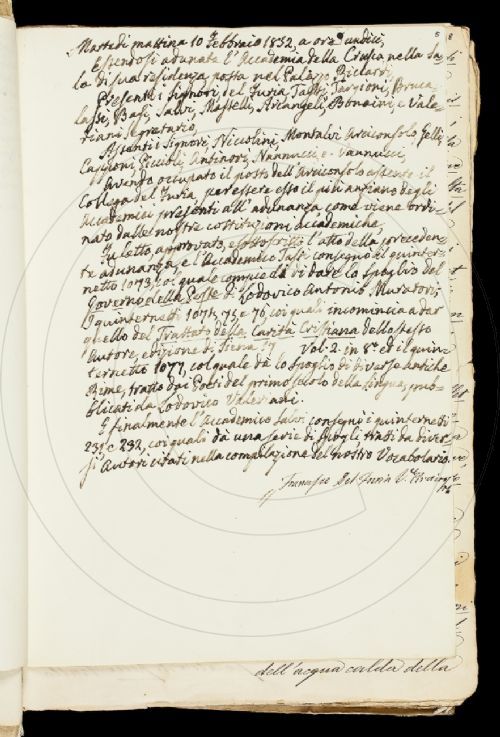 8 8
Martedì mattina 10 Febbraio 1832, a ore undici,
Essendosi adunata l'Accademia della Crusca nella Sa-
la di sua residenza posta nel Palazzo Riccardi,
Presenti i Signori, del Furia, Tassi, Targioni, Bruca-
lassi, Basi, Salvi, Mastelli, Arcangeli, Bonaini, e Vale-
riani Segretario,
Assenti i Signori, Niccolini, Montalvi Arciconsolo, Gelli,
Capponi, Ciccioli, Antinori, Nannucci, e Vannucci,
Avendo occupato il posto dell'Arciconsolo assente il
Collega del Furia, per essere esso il più anziano degli
Accademici presenti all'adunanza come viene ordi-
nato dalle nostre costituzioni accademiche,
Fu letto, approvato, e sottoscritto l'atto della preceden-
te adunanza, e l'Accademico Tassi consegnò il quinter-
netto 1073, col quale compie di dare lo spoglio del
Governo della Peste di Lodovico Antonio Muratori,
I quinternetti 1074, 75, e 76, coi quali incomincia a dar
quello del Trattato della Carità Cristiana dello stesso
Autore, edizione di Siena Vol. 2. in 8.º ed il quin-
ternetto 1077, col quale dà lo spoglio di diverse antiche
Rime, tratto dai Poeti del primo secolo della lingua, pub-
blicati da Lodovico Valeriani.
E finalmente l'Accademico Salvi consegnò i quinternetti
231, e 232, coi quali dà una serie di spogli tratti da diver-
si Autori citati nella compilazione del nostro Vocabolario.
Francesco Del Furia
dell'acqua calda della